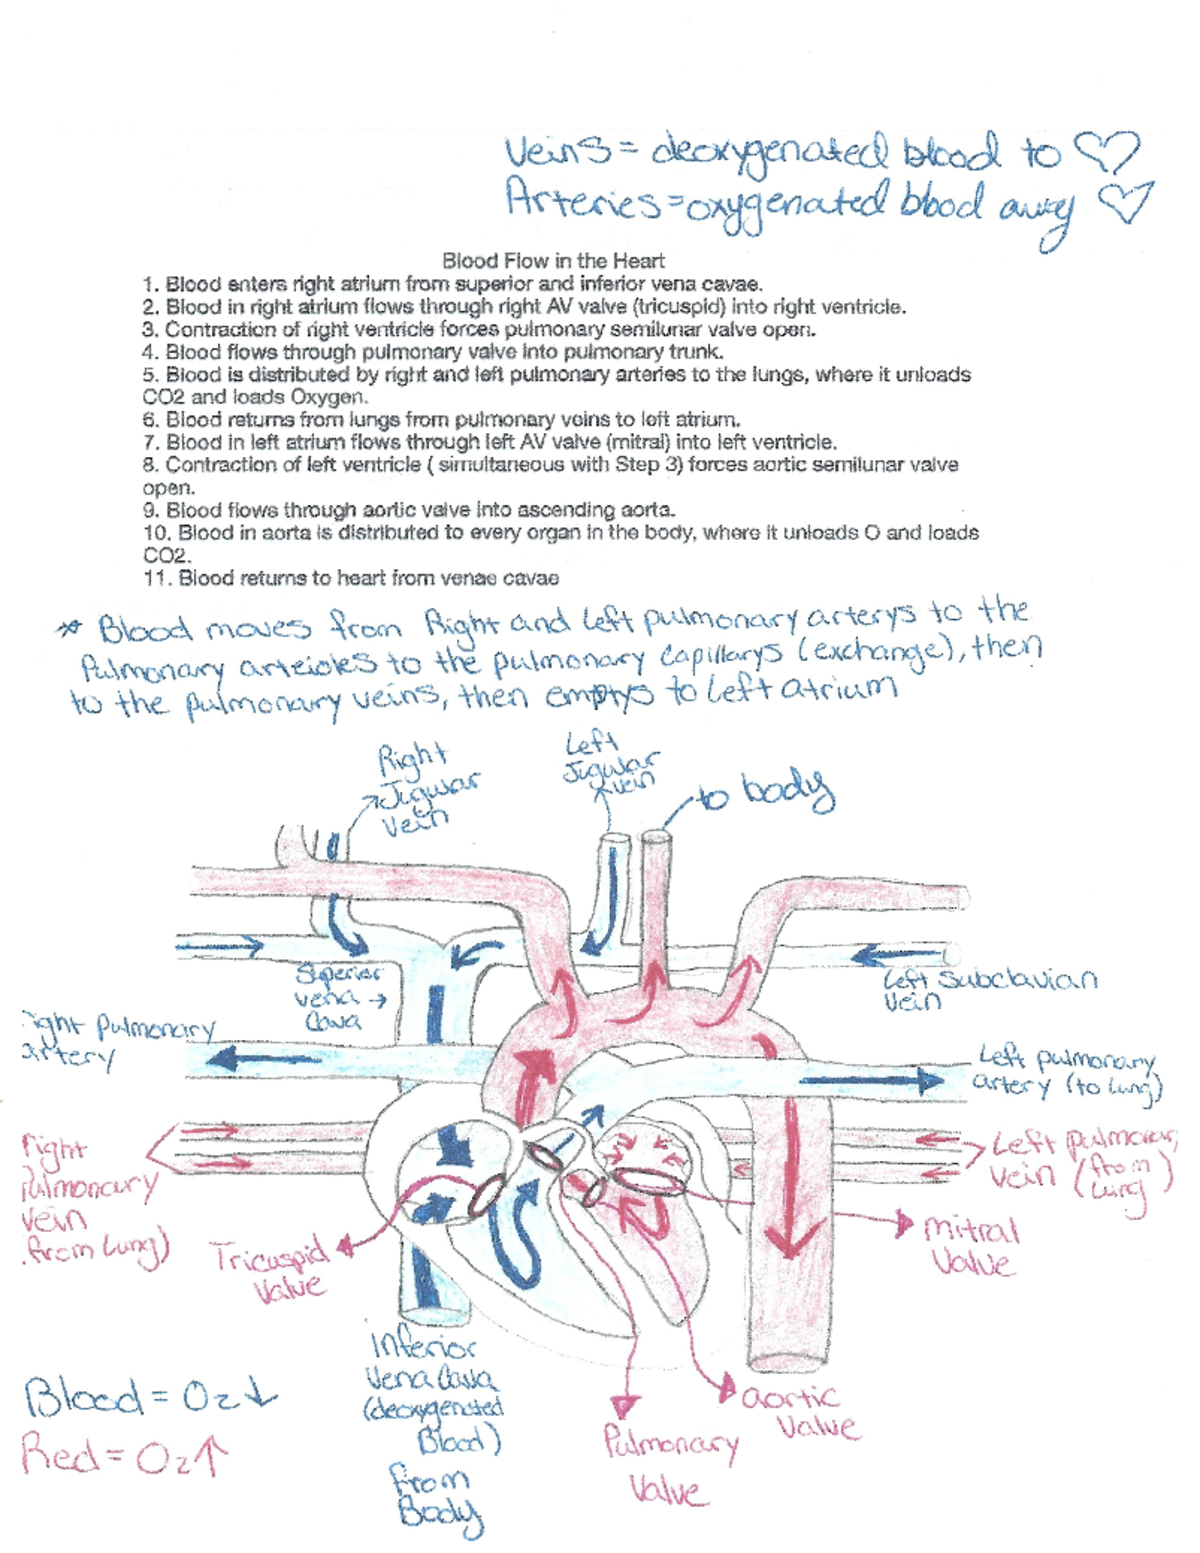 Veins = deoxygenated blood to ♡
Arteries = oxygenated blood away ♡
Blood Flow in the Heart
1. Blood enters right atrium from superior and inferior vena cavae.
2. Blood in right atrium flows through right AV valve (tricuspid) into right ventricle.
3. Contraction of right ventricle forces pulmonary semilunar valve open.
4. Blood flows through pulmonary valve into pulmonary trunk.
5. Blood is distributed by right and left pulmonary arteries to the lungs, where it unloads
CO2 and loads Oxygen.
6. Blood returns from lungs from pulmonary veins to left atrium.
7. Blood in left atrium flows through left AV valve (mitral) into left ventricle.
8. Contraction of left ventricle ( simultaneous with Step 3) forces aortic semilunar valve
open.
9. Blood flows through aortic valve into ascending aorta.
10. Blood in aorta is distributed to every organ in the body, where it unloads O and loads
CO2.
11. Blood returns to heart from venae cavae
* Blood moves from Right and Left pulmonary arterys to the
Pulmonary arterioles to the pulmonary capillarys (exchange), then
to the pulmonary veins, then emptys to Left atrium
Right
Jigular
Vein
Left
Jigular
vein
to body
Superior
vena →
Cava
Left Subclavian
Vein
ight pulmonary
artery
Left pulmonary
artery (to lung)
Right
Pulmonary
Vein
from Lung)
Left pulmonary
Vein (from
Lung)
Tricuspid
Valve
Mitral
Valve
Inferior
Vena Cava
(deoxygenated
Blood)
from
Body
aortic
Valve
Pulmonary
Valve
Blood = O2 ↓
Red = O2 ↑